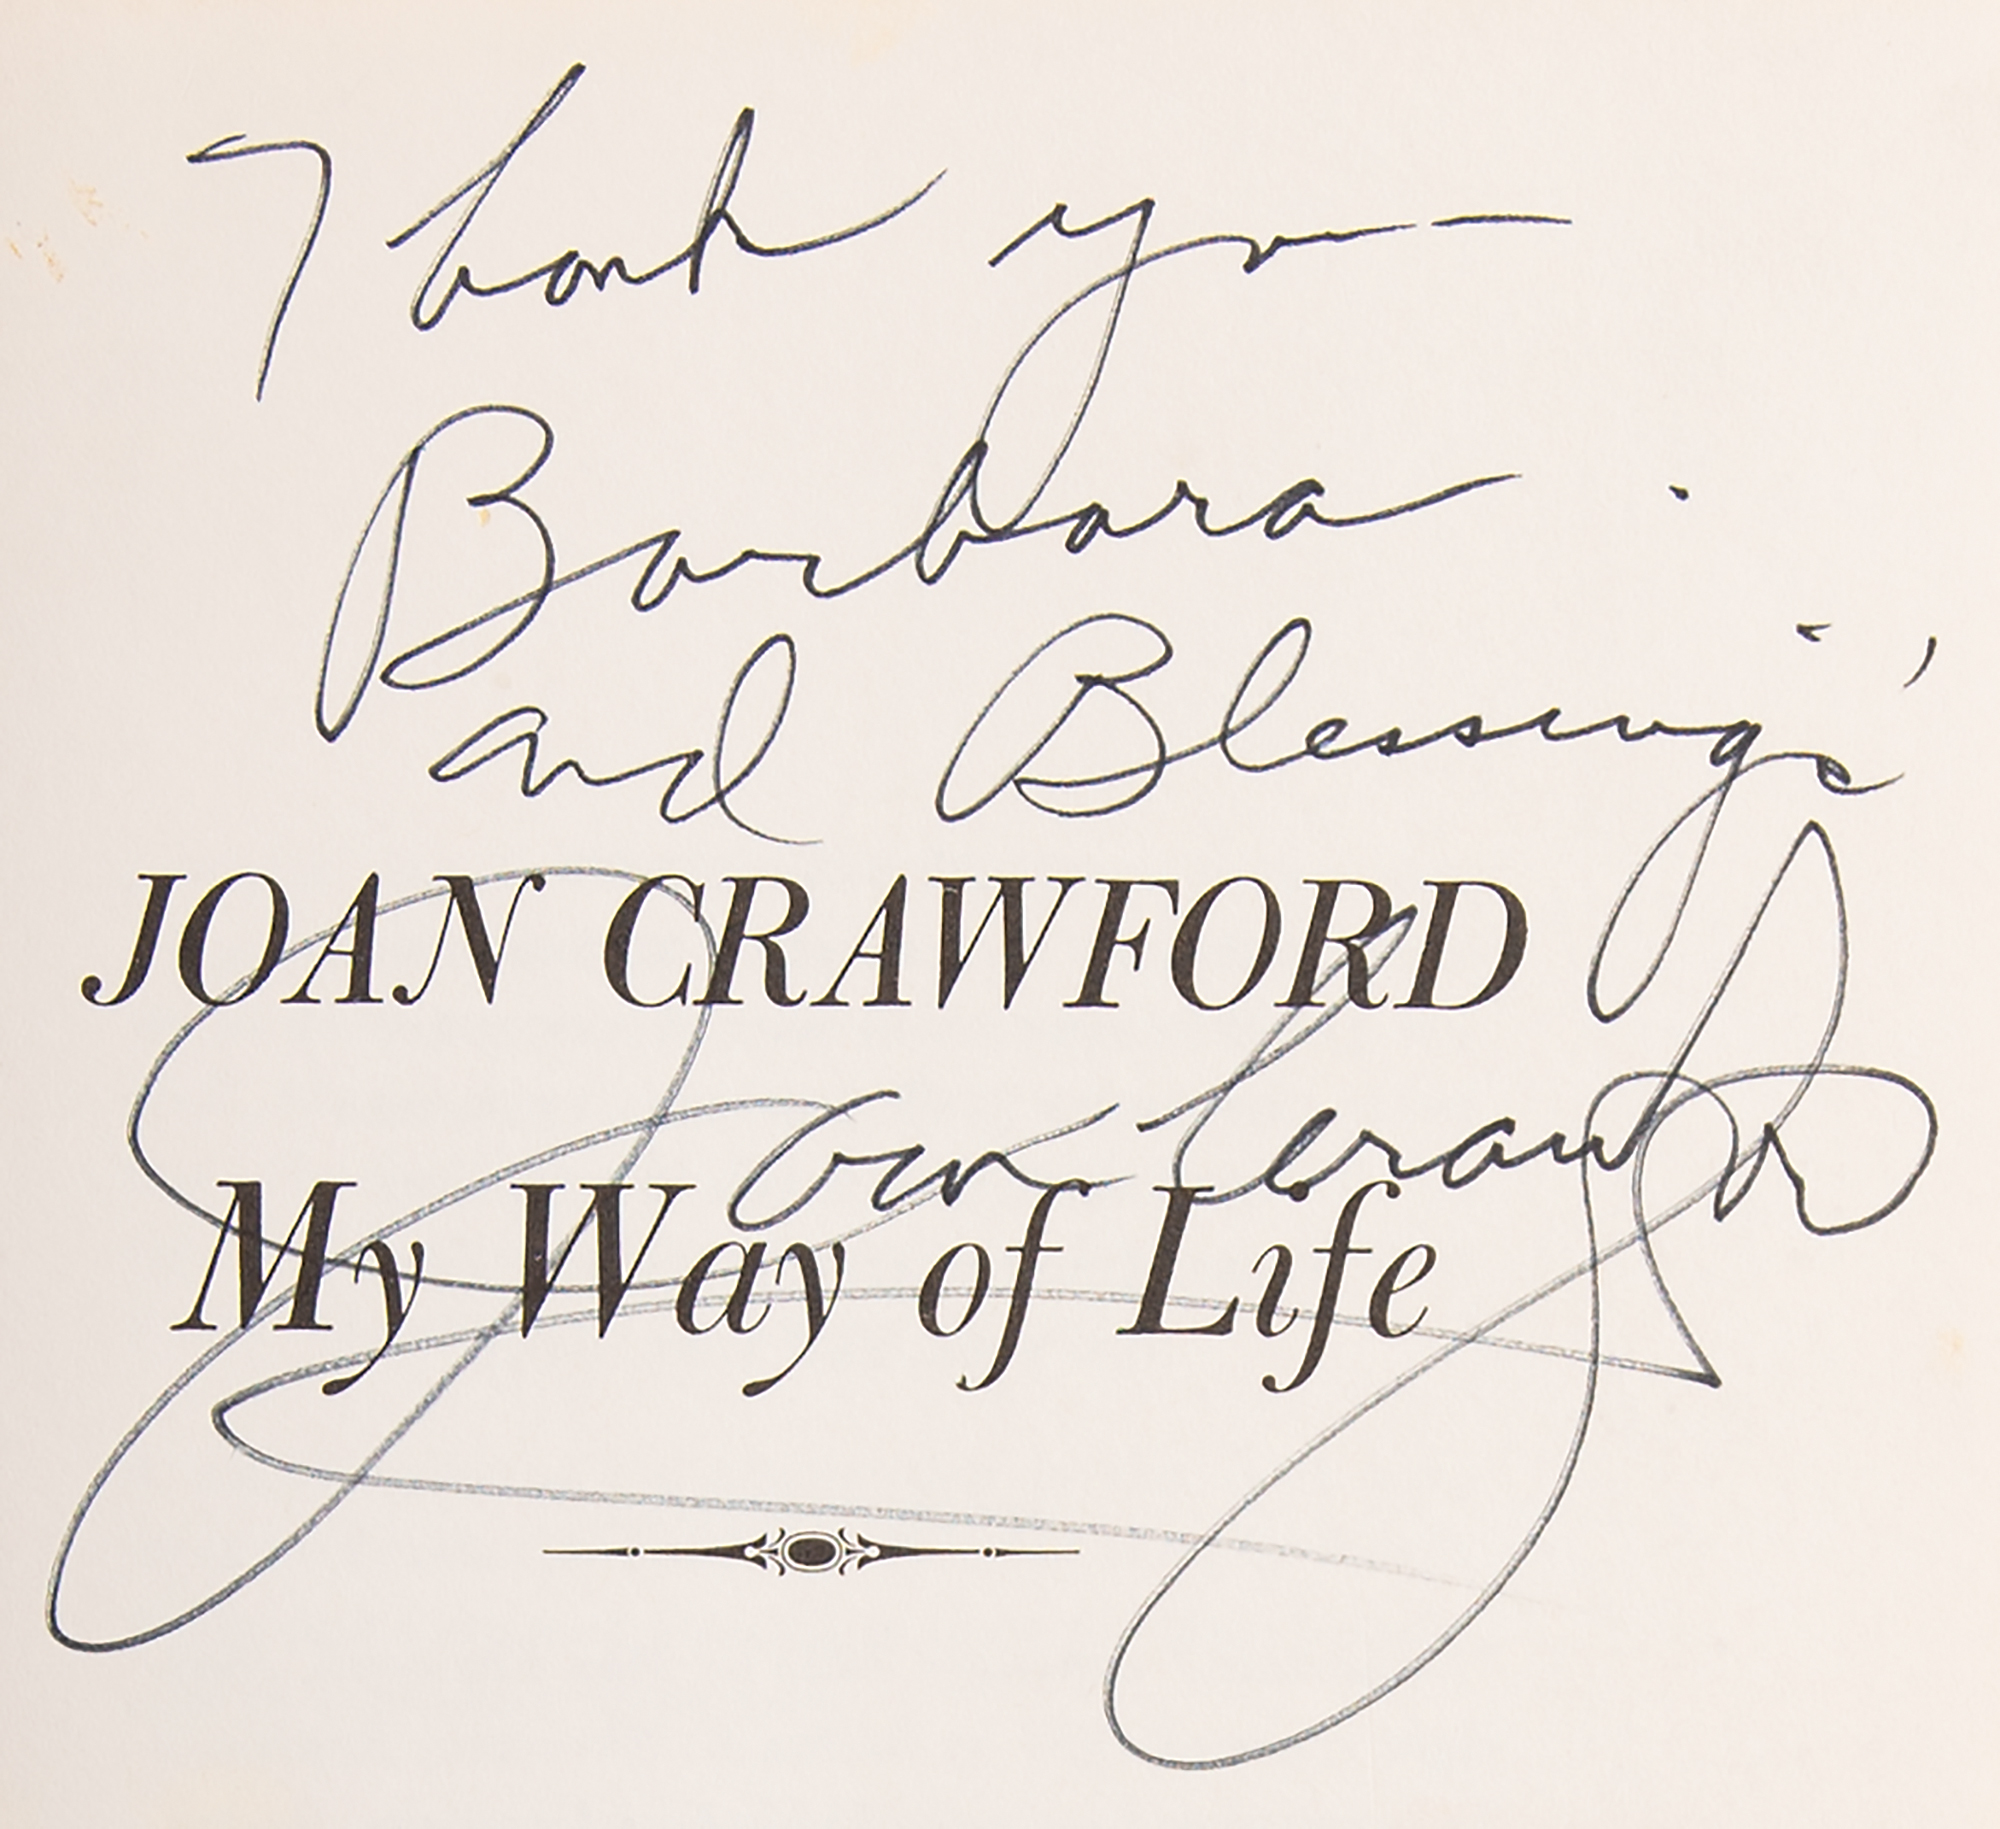 Thank you —
Barbara
and Blessings
JOAN CRAWFORD
Joan Crawford
My Way of Life